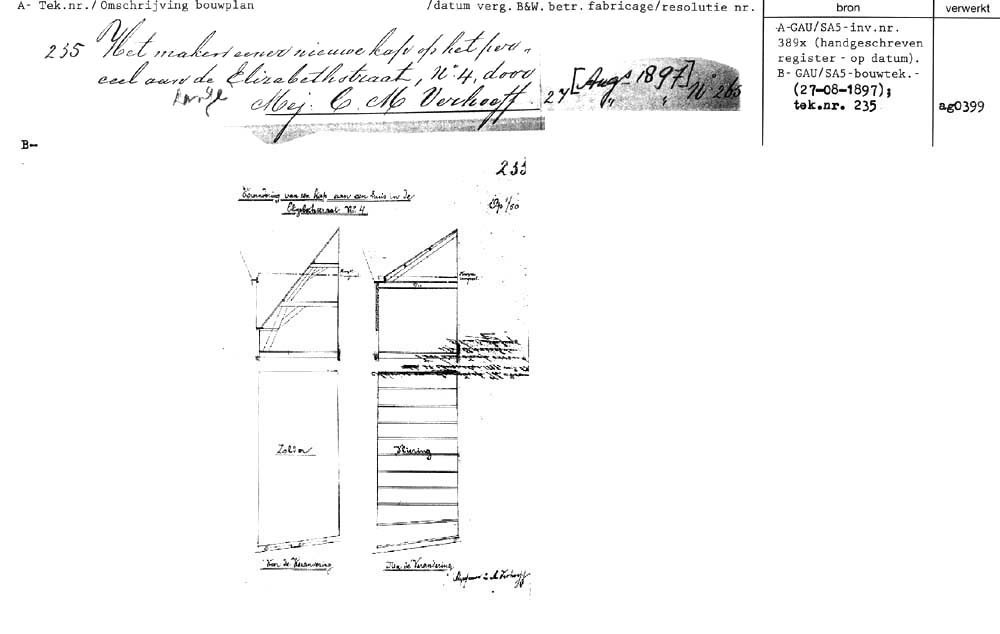 A- Tek.nr./Omschrijving bouwplan /datum verg. B&W. betr. fabricage/resolutie nr.
bron
verwerkt
235 Het maken eener nieuwe kap op het per-
ceel aan de Elizabethstraat, No 4, door
Mej. C. M. Verhoeff.
27 [Augs 1897] No 265
A-GAU/SA5-inv.nr.
389x (handgeschreven
register - op datum).
B- GAU/SA5-bouwtek.-
(27-08-1897);
tek.nr. 235
ag0399
B-
235
Verandering van een kap aan een huis in de
Elizabethstraat No 4
Op 1/50
Zolder
Vliering
Voor de Verandering
Na de Verandering